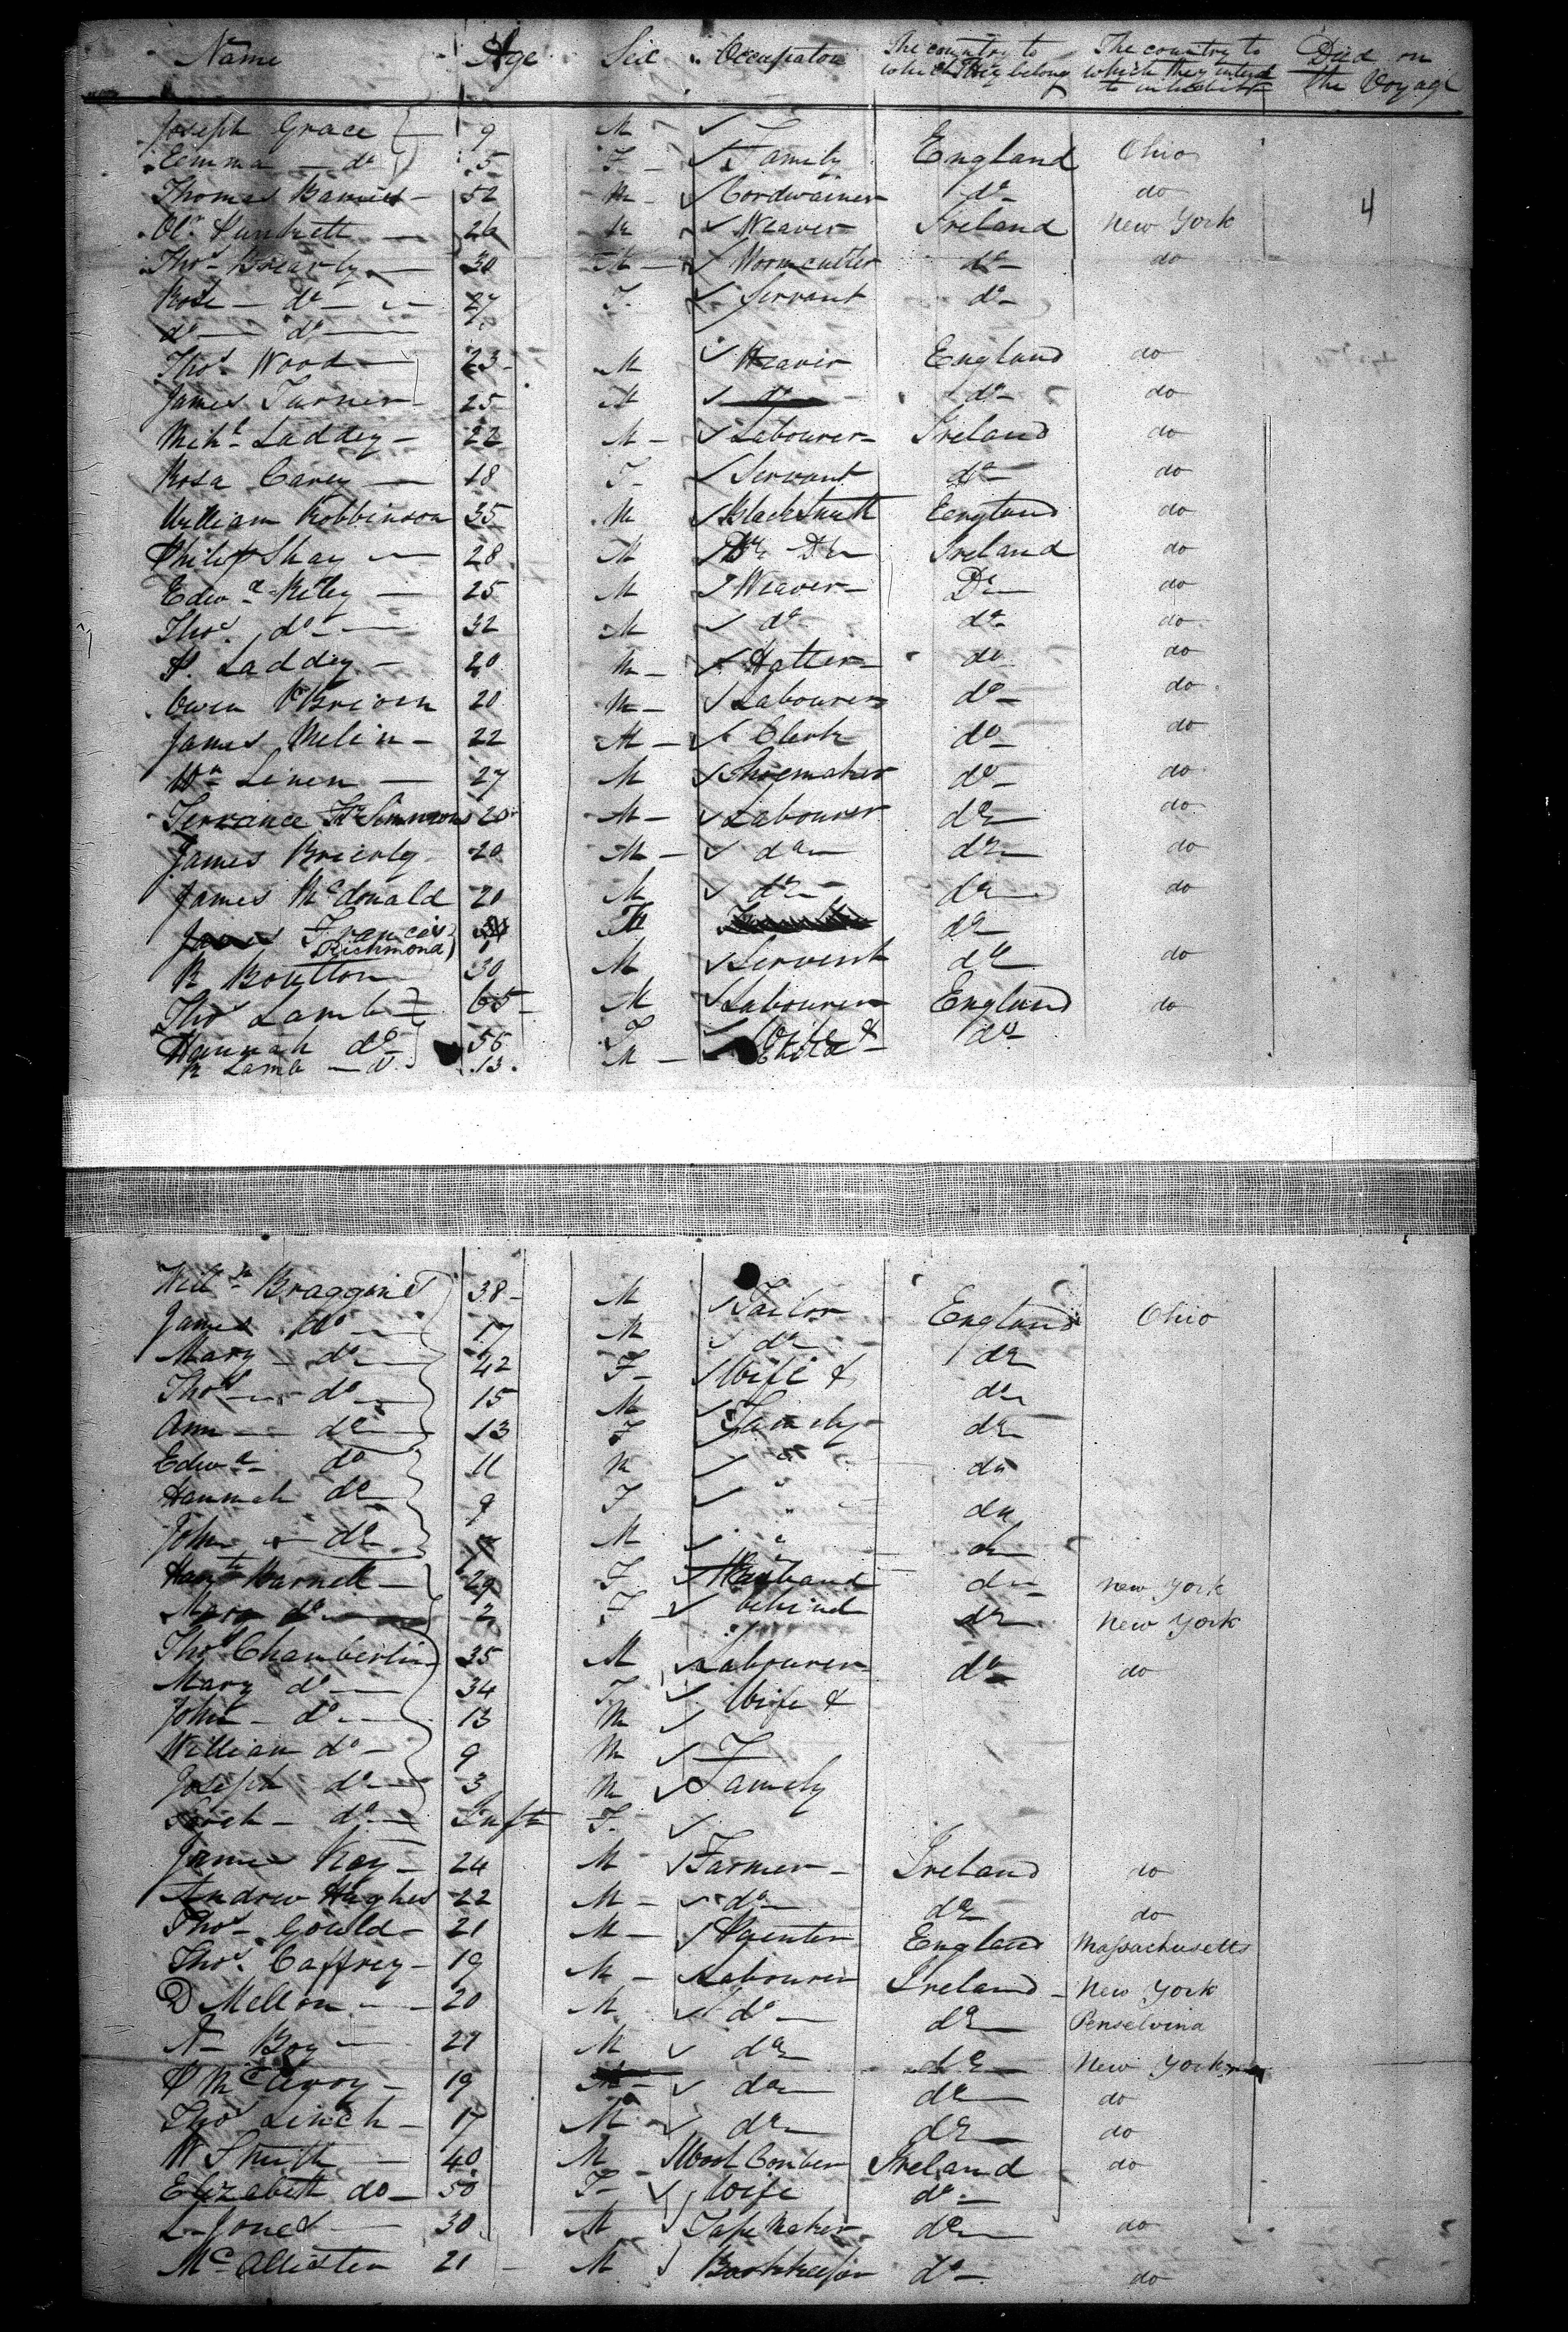 Name Age Sex Occupation The country to which They belong The country to which they intend to inhabit Died on the Voyage
Joseph Grace 9 M
Emma do 5 F Family England Ohio
Thomas 52 M Cordwainer do do 4
26 M Weaver Ireland New York
Thos 30 M do do
Rose do 27 F Servant do
do do
Thos Wood 23 M Weaver England do
James Turner 25 M do do do
Michl Laddey 22 M Labourer Ireland do
Rosa Carey 18 F Servant do do
William Robbinson 35 M BlackSmith England do
Philip Shay 28 M Do Do Ireland do
Edwd Riley 25 M Weaver Do do
Thos do 32 M do do do
P. Laddey 20 M Hatter do do
Owen OBrion 20 M Labourer do do
James Melin 22 M Clerk do do
Wm Linen 27 M Shoemaker do do
Terrance 20 M Labourer do do
James Brierly 20 M do do do
James McDonald 20 M do do do
James Francis do
Richmond)
R Boutton 30 M Servent do do
Thos Lamb 65 M Labourer England do
Hannah do 56 F Wife & do
R Lamb do 13 M Child
Willm Braggins 38 M Tailor England Ohio
James do 17 M do
Mary do 42 F Wife & do
Thos do 15 M do
Ann do 13 F Family do
Edwd do 11 M " do
Hannah do 9 F " do
John do M " do
Barnett 29 F Husband do New York
Mary do 2 F behind do New York
Thos Chamberlin 35 M Labourer do do
Mary do 34 F Wife &
John do 13 M
William do 9 M
Joseph do 3 M Famely
do Inft F
James Kay 24 M Farmer Ireland do
Andrew Hughes 22 M do do do
Thos Gould 21 M Painter England Massachusetts
Thos Caffrey 19 M Labourer Ireland New York
D Mellon 20 M do do Penselvina
Boy 21 M do do New York
P McAvoy 19 M do do do
Thos Linch 17 M do do do
W Smith 40 M Wool Comber Ireland do
Elizabeth do 50 F Wife do
L Jones 30 M Maker do do
Mc Allister 21 M Bookkeeper do do